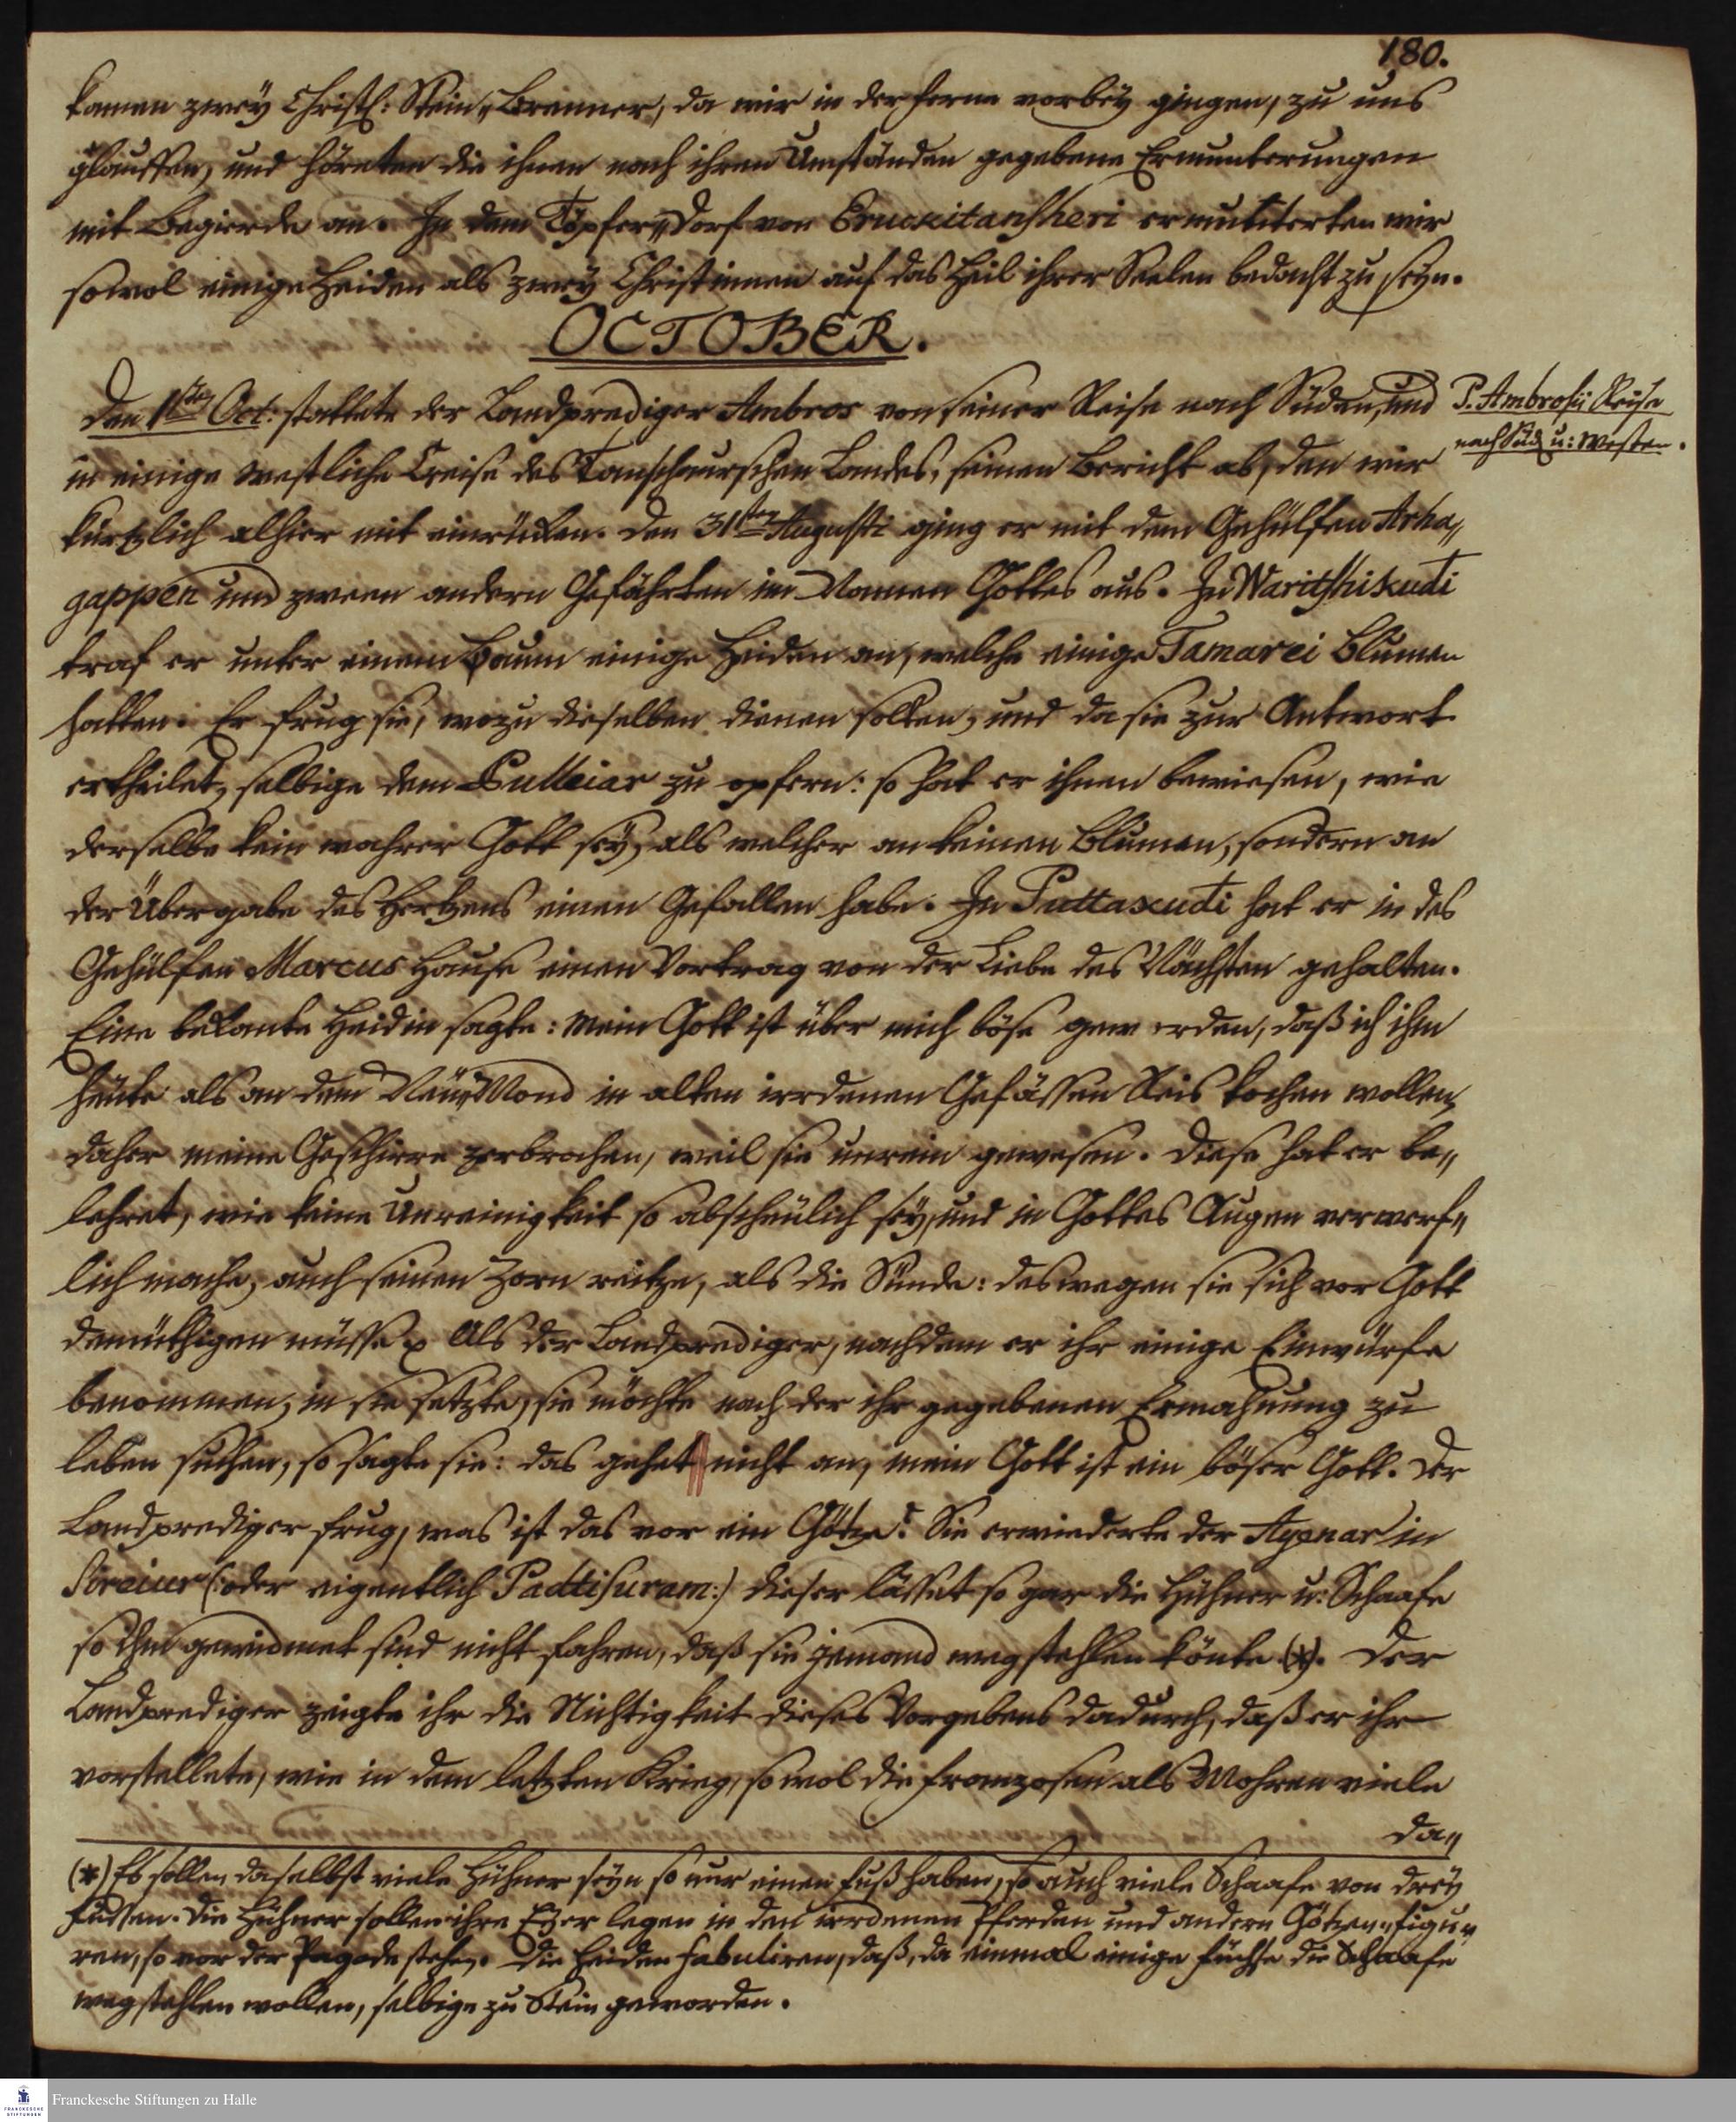 180.
kamen zwey Christl: Stein„Brenner, da wir in der ferne vorbey gingen, zu uns
glauffen, und höreten die ihnen nach ihren Umständen gegebene Ermunterungen
mit Begierde an. In dem Töpfer„Dorf von Eruckitanscheri ermuntterten wir
sowol einige Heiden als zwey Christinnen auf das Heil ihrer Seelen bedacht zu seyn.
OCTOBER.
Den 1sten Oct: stattete der Landprediger Ambros von seiner Reise nach Süden, und
P. Ambrosii Reise
nach Süd u: Westen.
in einige westliche Creise des Tanschaurschen Landes, seinen Bericht ab, den wir
kürtzlich alhier mit einrücken. Den 31sten Augusti ging er mit dem Gehülfen Arha„
gappen und zween andern Gefährten im Namen Gottes aus. In Waritschikudi
traf er unter einem Baum einige Heiden an, welche einige Tamarei Blumen
hatten. Er frug sie, wozu dieselben dienen solten, und da sie zur Antwort
ertheilet, selbige dem Pulleiar zu opfern: so hat er ihnen bewiesen, wie
derselbe kein wahrer Gott sey, als welcher an keinen Blumen, sondern an
der Übergabe des Hertzens einen Gefallen habe. In Puttacudi hat er in des
Gehülfen Marcus Hause einen Vortrag von der Liebe des Nächsten gehalten.
Eine bekante Heidin sagte: Mein Gott ist über mich böse geworden, daß ich ihm
heute als an dem Neu„Mond in alten irrdenen Gefässen Reis kochen wollen,
daher meine Geschirre zerbrochen, weil sie unrein gewesen. Diese hat er be„
lehret, wie keine Unreinigkeit so abscheulich sey, und in Gottes Augen verwerf„
lich mache, auch seinen Zorn reitze, als die Sünde: deswegen sie sich vor Gott
demüthigen müsse. Als der Landprediger, nachdem er ihr einige Einwürfe
benommen, in sie setzte, sie möchte nach der ihr gegebenen Ermahnung zu
leben suchen, so sagte sie: das gehet nicht an, mein Gott ist ein böser Gott. Der
Landprediger frug, was ist das vor ein Götze? Sie erwiederte der Ayenar in
Sireiur (:oder eigentlich Padtisuram:) dieser lässet so gar die Hühner u: Schaafe
so ihm gewidmet sind nicht fahren, daß sie jemand wegstehlen könte (*). Der
Landprediger zeigte ihr die Nichtigkeit dieses Vorgebens dadurch, daß er ihr
vorstellete, wie in dem letzten Krieg, sowol die Franzosen als Mohren viele
da„
(*) Es sollen daselbst viele Hühner seyn so nur einen Fuß haben, so auch viele Schaafe von drey
Füssen. Die Hühner sollen ihre Eyer legen in den irrdenen Pferden und andern Götzen„Figu„
ren, so vor der Pagode stehen. Die Heiden fabuliren, daß, da einmal einige Füchse die Schaafe
wegstehlen wollen, selbige zu Stein geworden.
Franckesche Stiftungen zu Halle